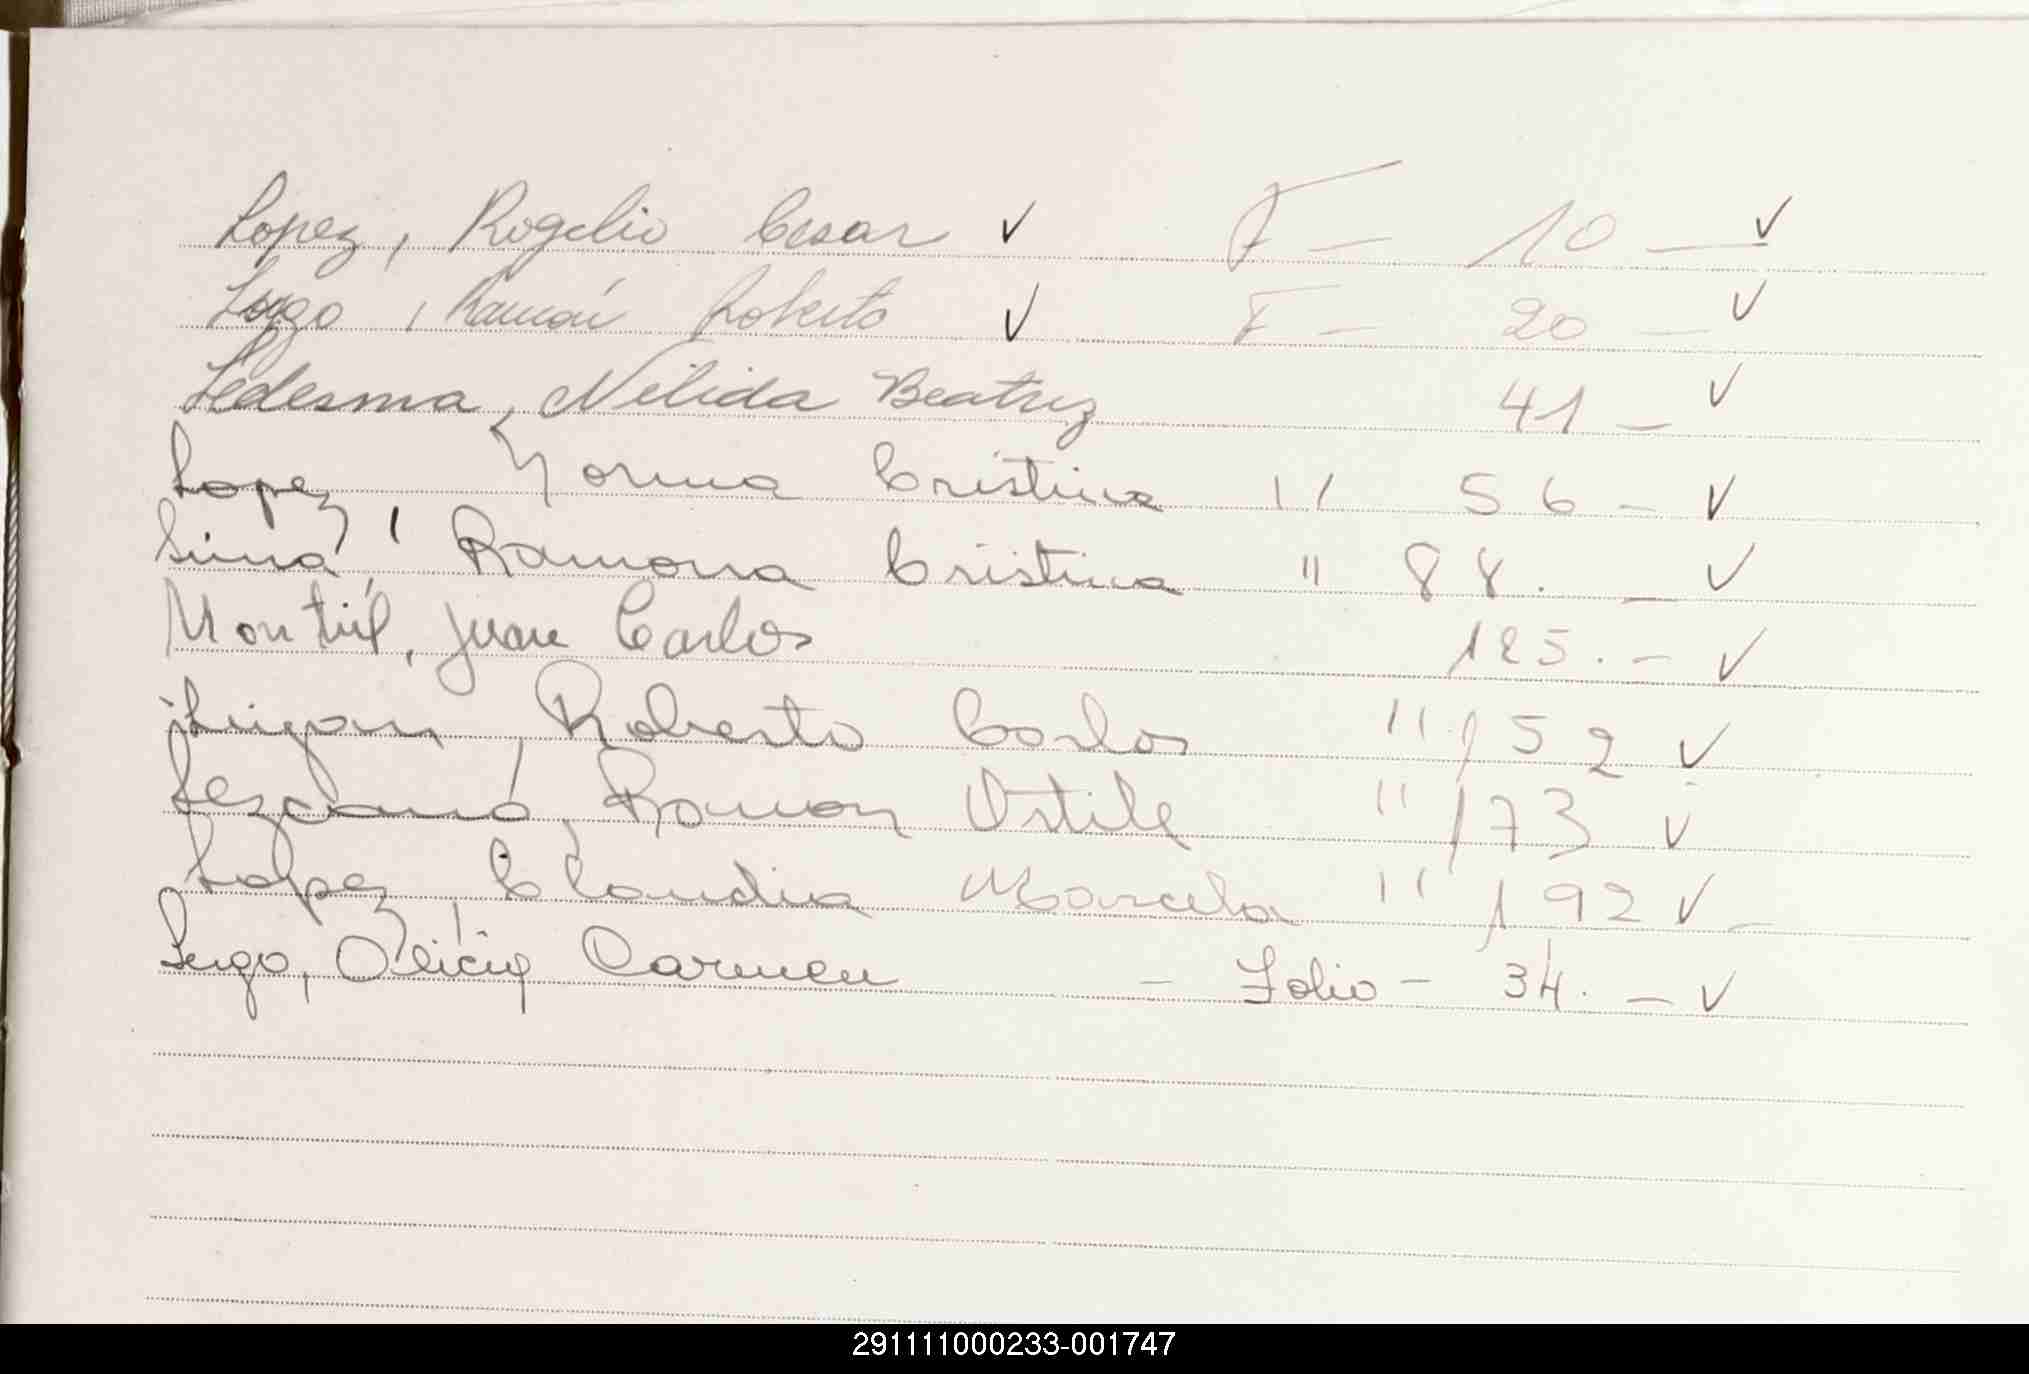 Lopez, Rogelio Cesar ✓ F — 10 — ✓
Lugo, Ramón Roberto ✓ F — 20 — ✓
Ledesma, Nélida Beatriz 41 — ✓
Lopez, Norma Cristina " 56 — ✓
Ramona Cristina " 88. — ✓
Montiél, Juan Carlos 125. — ✓
Roberto Carlos " 152 ✓
Lezcano, Ramon " 173 ✓
Lopez, Claudia Marcela " 192 ✓ —
Lugo, Alicia Carmen — Folio — 34. — ✓
291111000233-001747